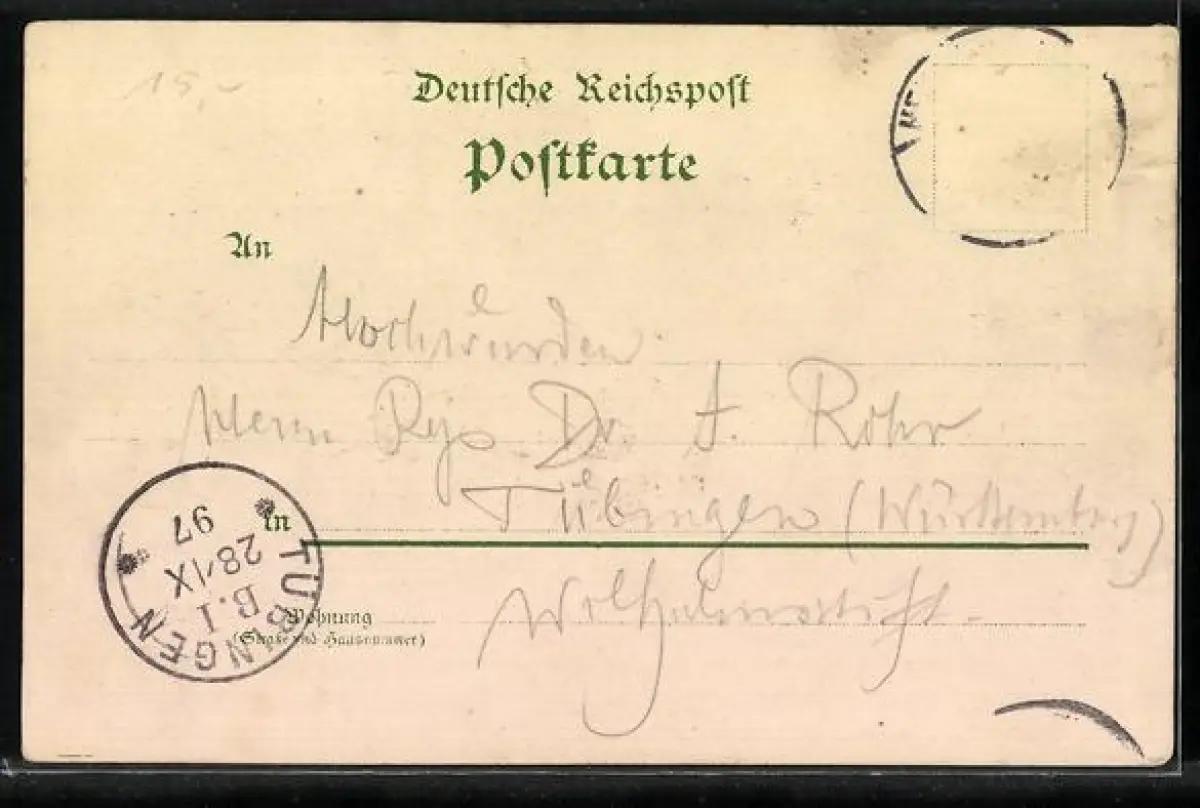 15,-
Deutsche Reichspost
Postkarte
An
Hochwürden
Herrn Dr. A. Röhr
in Tübingen (Württemberg)
Wohnung
(Straße und Hausnummer)
Wilhelmsstift.
TÜBINGEN
B.I
28/IX
97